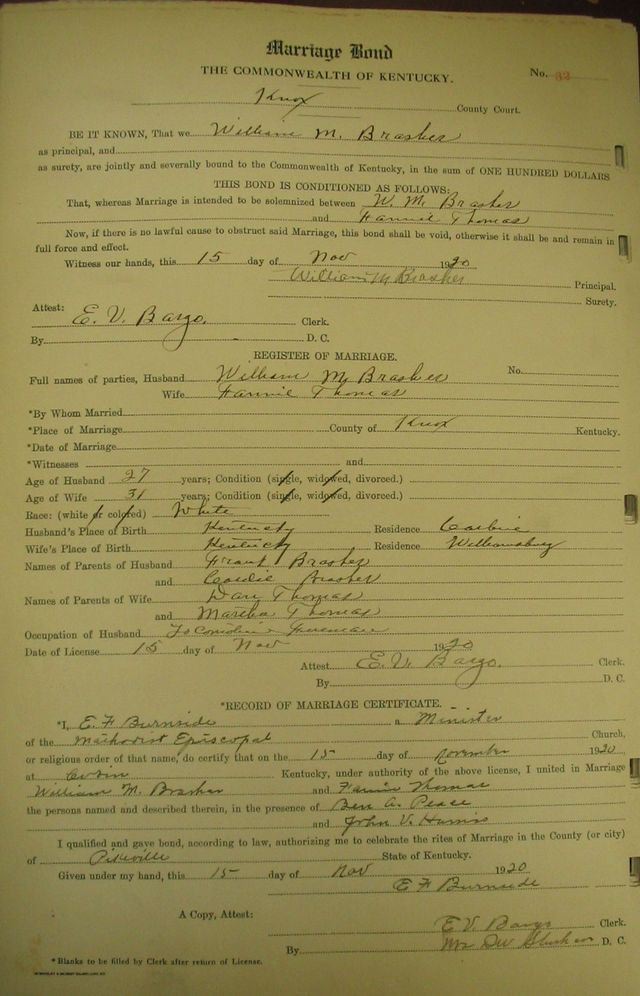 Marriage Bond
THE COMMONWEALTH OF KENTUCKY. No. 32
Knox County Court.
BE IT KNOWN, That we William M. Brasher
as principal, and
as surety, are jointly and severally bound to the Commonwealth of Kentucky, in the sum of ONE HUNDRED DOLLARS
THIS BOND IS CONDITIONED AS FOLLOWS:
That, whereas Marriage is intended to be solemnized between W. M. Brasher
and Fannie Thomas
Now, if there is no lawful cause to obstruct said Marriage, this bond shall be void, otherwise it shall be and remain in
full force and effect.
Witness our hands, this 15 day of Nov 1920
William M Brasher Principal.
Surety.
Attest:
E. V. Bargo. Clerk.
By D. C.
REGISTER OF MARRIAGE.
Full names of parties, Husband William M. Brasher No.
Wife Fannie Thomas
*By Whom Married
*Place of Marriage County of Knox Kentucky.
*Date of Marriage
*Witnesses and
Age of Husband 27 years; Condition (single, widowed, divorced.)
Age of Wife 31 years; Condition (single, widowed, divorced.)
Race: (white or colored) White
Husband's Place of Birth Kentucky Residence
Wife's Place of Birth Kentucky Residence Williamsburg
Names of Parents of Husband Brasher
and Brasher
Names of Parents of Wife Thomas
and Martha Thomas
Occupation of Husband
Date of License 15 day of Nov 1920
Attest E. V. Bargo. Clerk.
By D. C.
*RECORD OF MARRIAGE CERTIFICATE.
*I, E. F Burnside a Minister
of the Methodist Episcopal Church,
or religious order of that name, do certify that on the 15 day of November 1920
at Corbin Kentucky, under authority of the above license, I united in Marriage
William M. Brasher and Fannie Thomas
the persons named and described therein, in the presence of Ben A. Peace
and John V. Harris
I qualified and gave bond, according to law, authorizing me to celebrate the rites of Marriage in the County (or city)
of Pikeville State of Kentucky.
Given under my hand, this 15 day of Nov 1920
E F Burnside
A Copy, Attest:
E V Bargo Clerk.
By Mrs D. C.
*Blanks to be filled by Clerk after return of License.